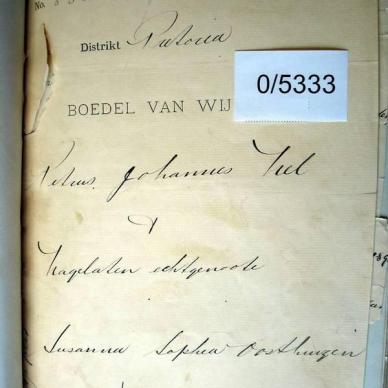 No.
Distrikt Pretoria
0/5333
BOEDEL VAN WIJ
Petrus Johannes Nel
&
Nagelaten echtgenoote
Susanna Sophia Oosthuizen